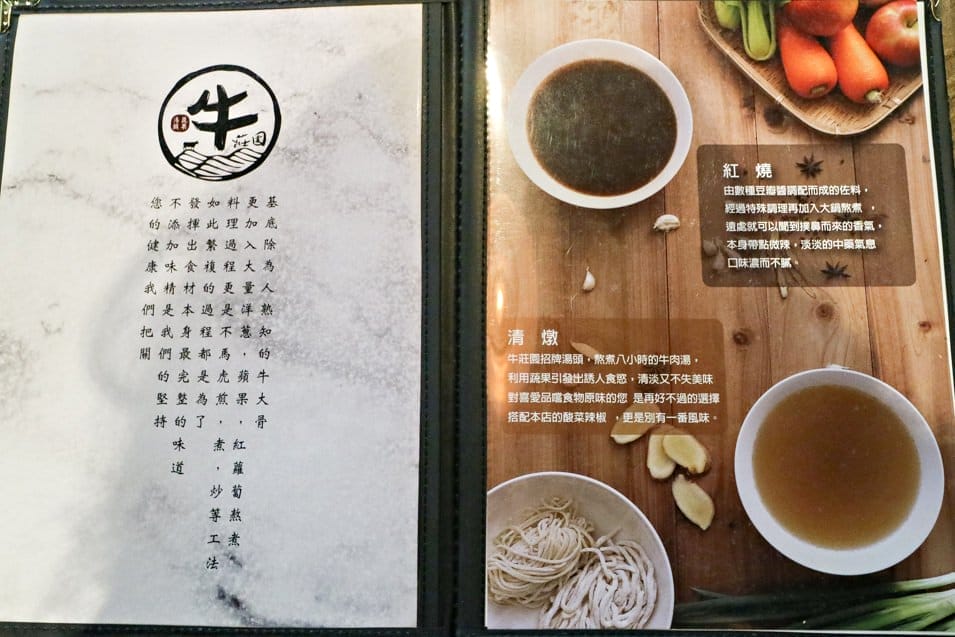 牛
莊園
基底除為人熟知的牛大骨
更加入大量洋蔥,蘋果,紅蘿蔔熬煮
料理過程更是不馬虎煎,煮,炒等工法
如此繁複的過程都是為了,
發揮出食材本身最完整的味道
不添加味精是我們的堅持
您的健康我們把關
紅燒
由數種豆瓣醬調配而成的佐料,
經過特殊調理再加入大鍋熬煮,
遠處就可以聞到撲鼻而來的香氣,
本身帶點微辣,淡淡的中藥氣息
口味濃而不膩。
清燉
牛莊園招牌湯頭,熬煮八小時的牛肉湯,
利用蔬果引發出誘人食慾,清淡又不失美味
對喜愛品嚐食物原味的您 是再好不過的選擇
搭配本店的酸菜辣椒 ,更是別有一番風味。